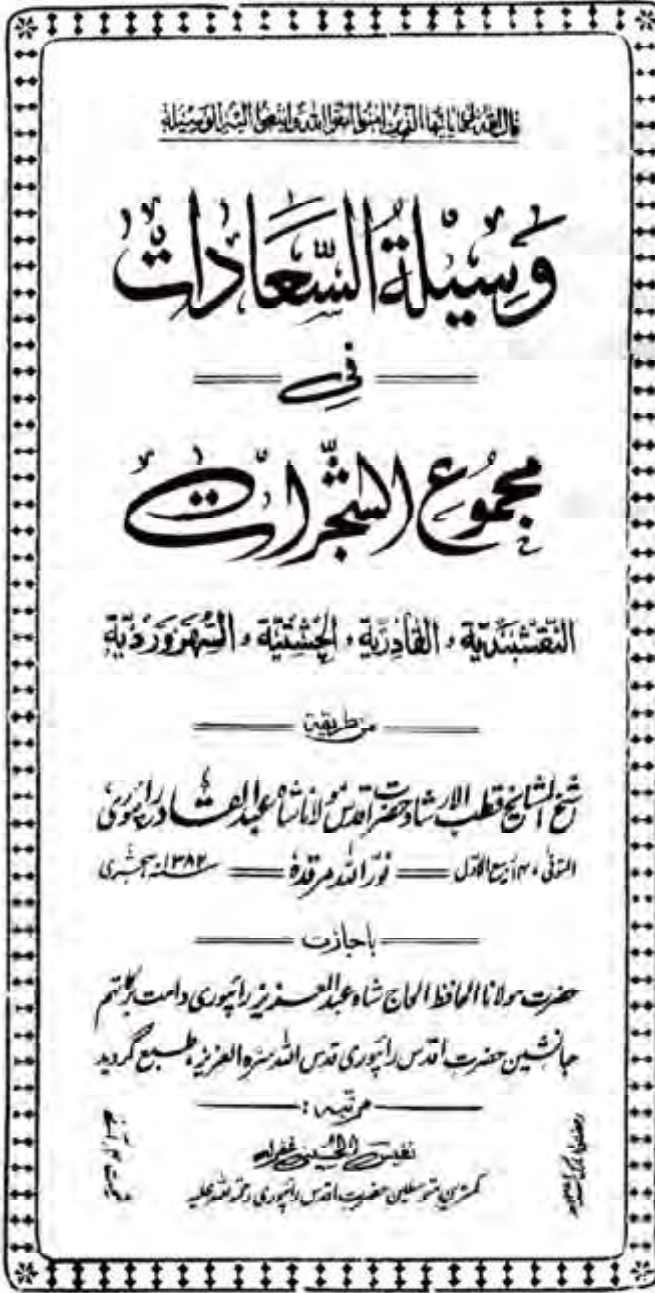 قال الله تعالى يا ايها الذين امنوا اتقوا الله وابتغوا اليه الوسيلة
وَسِيلةُ السَّعَادات
فی
مجموع الشّجرات
النقشبندية ، القادرية ، الچشتية ، السهروردية
من طريقة
شیخ المشایخ قطب الارشاد حضرت اقدس مولانا شاہ عبد القادر رائپوری
المتوفی ربیع الاول نور اللہ مرقدہ ۱۳۸۲ سنہ ہجری
باجازت
حضرت مولانا الحافظ الحاج شاہ عبد العزیز رائپوری دامت برکاتہم
جانشین حضرت اقدس رائپوری قدس اللہ سرہ العزیز طبع گردید
مرتبہ :
نفیس الحسینی غفرلہ
کمترین متوسلین حضرت اقدس رائپوری رحمۃ اللہ علیہ